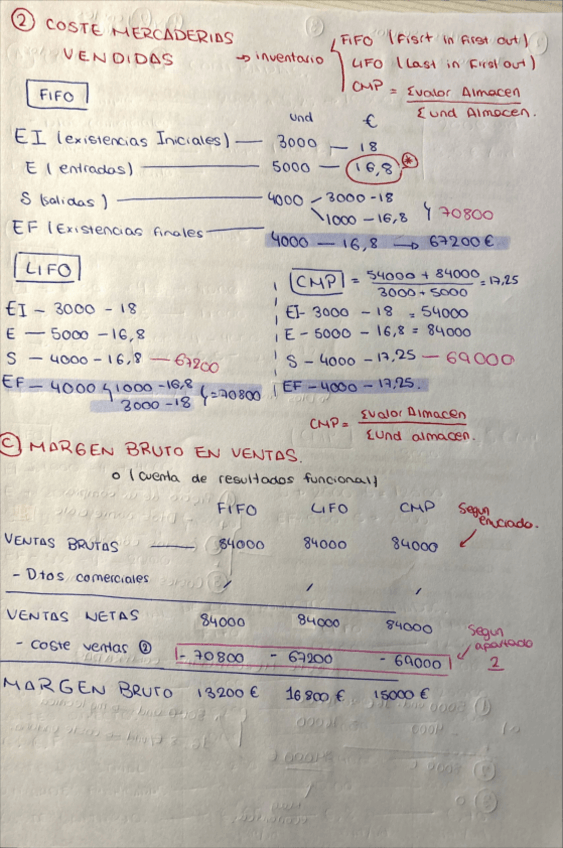 ② COSTE MERCADERIAS
VENDIDAS → inventario
FIFO (Fisrt in First out)
LIFO (Last in First out)
CMP = Σvalor Almacen / Σund Almacen.
FIFO
und €
EI (existencias Iniciales) — 3000 — 18
E (entradas) — 5000 — 16,8 *
S (salidas) — 4000 3000 - 18
1000 - 16,8 70800
EF (Existencias finales — 4000 — 16,8 → 67200 €
LIFO
EI - 3000 - 18
E — 5000 - 16,8
S — 4000 - 16,8 — 67200
EF - 4000 1000 - 16,8
3000 - 18 = 70800
CMP = 54000 + 84000 / 3000 + 5000 = 17,25
EI - 3000 - 18 = 54000
E - 5000 - 16,8 = 84000
S - 4000 - 17,25 — 69000
EF - 4000 - 17,25.
CMP = Σvalor Almacen / Σund almacen.
Ⓒ MARGEN BRUTO EN VENTAS.
o (cuenta de resultados funcional)
FIFO LIFO CMP Segun
enciado.
VENTAS BRUTAS — 84000 84000 84000
- Dtos comerciales / / /
VENTAS NETAS 84000 84000 84000
- coste ventas ② - 70800 - 67200 - 69000
Segun
apartado
2
MARGEN BRUTO 13200 € 16800 € 15000 €